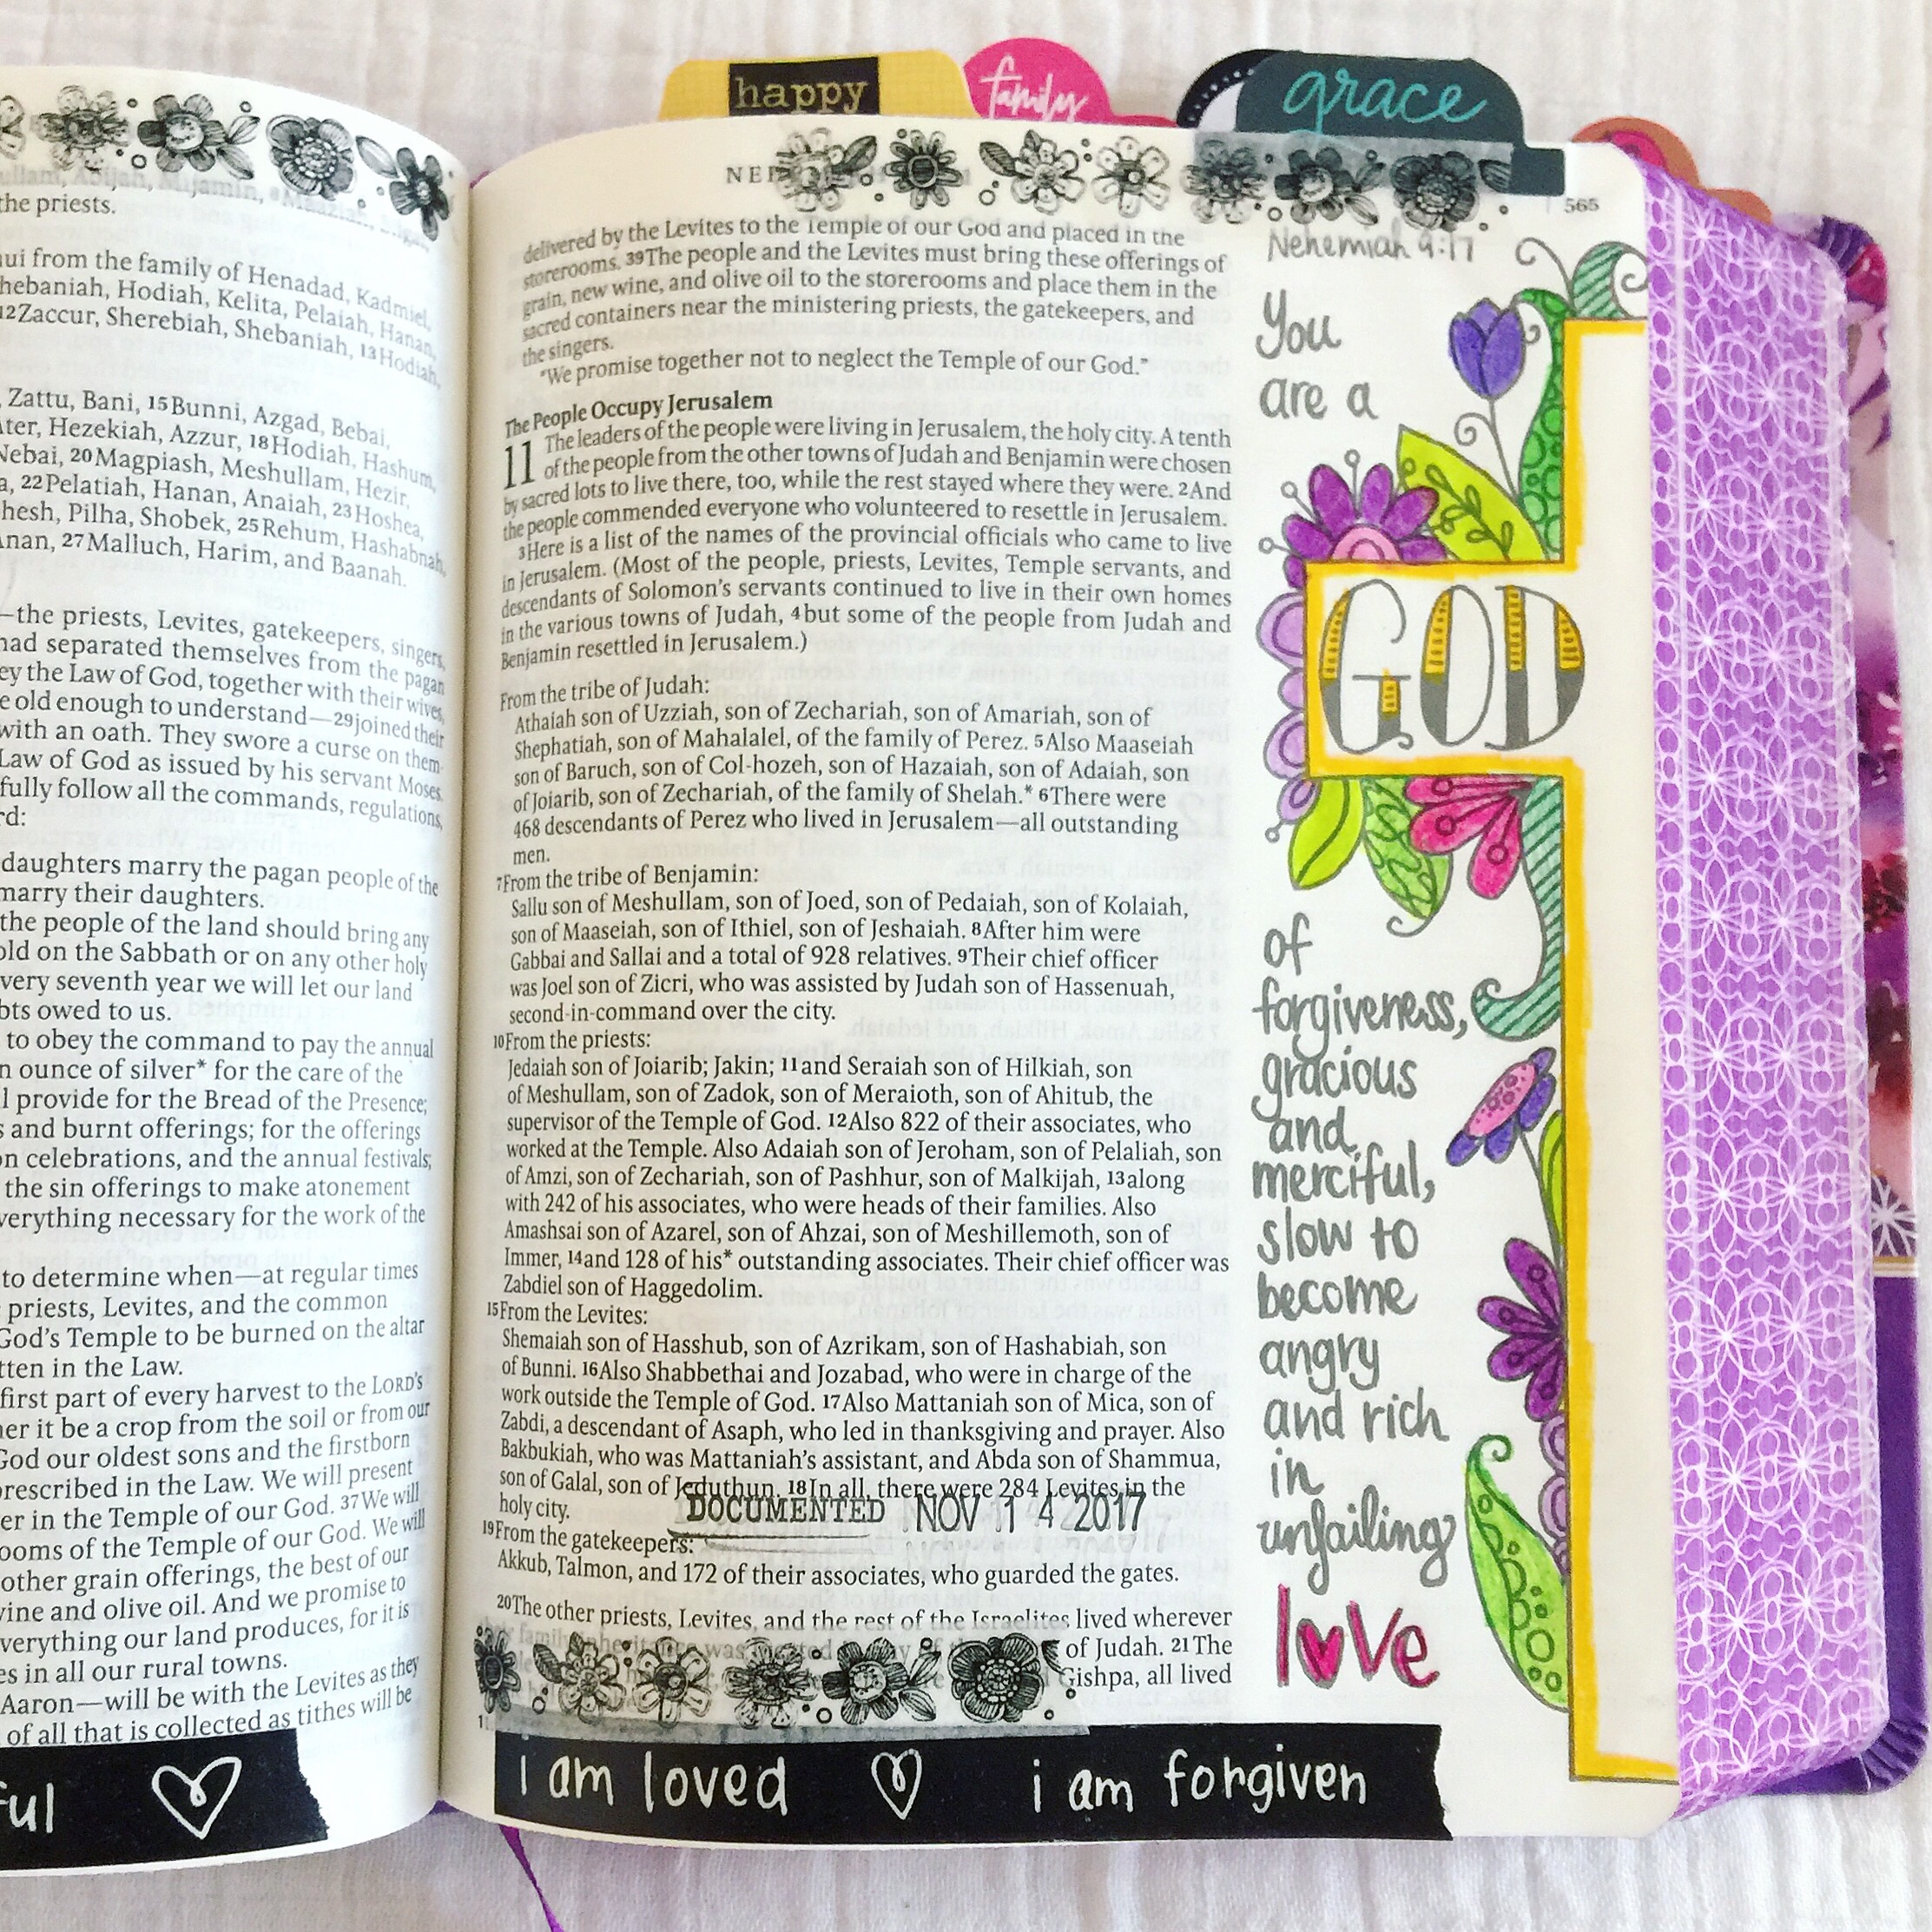 happy
family
grace
565
the priests.
ui from the family of Henadad, Kadmiel,
hebaniah, Hodiah, Kelita, Pelaiah, Hanan,
12Zaccur, Sherebiah, Shebaniah, 13Hodiah,
Zattu, Bani, 15Bunni, Azgad, Bebai,
ter, Hezekiah, Azzur, 18Hodiah, Hashum,
Nebai, 20Magpiash, Meshullam, Hezir,
a, 22Pelatiah, Hanan, Anaiah, 23Hoshea,
hesh, Pilha, Shobek, 25Rehum, Hashabnah,
anan, 27Malluch, Harim, and Baanah.
—the priests, Levites, gatekeepers, singers,
had separated themselves from the pagan
ey the Law of God, together with their wives,
e old enough to understand—29joined their
with an oath. They swore a curse on them-
Law of God as issued by his servant Moses.
fully follow all the commands, regulations,
rd:
daughters marry the pagan people of the
marry their daughters.
the people of the land should bring any
old on the Sabbath or on any other holy
very seventh year we will let our land
bts owed to us.
to obey the command to pay the annual
n ounce of silver* for the care of the
l provide for the Bread of the Presence;
s and burnt offerings; for the offerings
on celebrations, and the annual festivals;
the sin offerings to make atonement
verything necessary for the work of the
to determine when—at regular times
priests, Levites, and the common
God's Temple to be burned on the altar
tten in the Law.
first part of every harvest to the LORD's
her it be a crop from the soil or from our
God our oldest sons and the firstborn
prescribed in the Law. We will present
er in the Temple of our God. 37We will
ooms of the Temple of our God. We will
other grain offerings, the best of our
wine and olive oil. And we promise to
verything our land produces, for it is
es in all our rural towns.
Aaron—will be with the Levites as they
of all that is collected as tithes will be
ful
delivered by the Levites to the Temple of our God and placed in the
storerooms. 39The people and the Levites must bring these offerings of
grain, new wine, and olive oil to the storerooms and place them in the
sacred containers near the ministering priests, the gatekeepers, and
the singers.
"We promise together not to neglect the Temple of our God."
The People Occupy Jerusalem
11 The leaders of the people were living in Jerusalem, the holy city. A tenth
of the people from the other towns of Judah and Benjamin were chosen
by sacred lots to live there, too, while the rest stayed where they were. 2And
the people commended everyone who volunteered to resettle in Jerusalem.
3Here is a list of the names of the provincial officials who came to live
in Jerusalem. (Most of the people, priests, Levites, Temple servants, and
descendants of Solomon's servants continued to live in their own homes
in the various towns of Judah, 4but some of the people from Judah and
Benjamin resettled in Jerusalem.)
From the tribe of Judah:
Athaiah son of Uzziah, son of Zechariah, son of Amariah, son of
Shephatiah, son of Mahalalel, of the family of Perez. 5Also Maaseiah
son of Baruch, son of Col-hozeh, son of Hazaiah, son of Adaiah, son
of Joiarib, son of Zechariah, of the family of Shelah.* 6There were
468 descendants of Perez who lived in Jerusalem—all outstanding
men.
7From the tribe of Benjamin:
Sallu son of Meshullam, son of Joed, son of Pedaiah, son of Kolaiah,
son of Maaseiah, son of Ithiel, son of Jeshaiah. 8After him were
Gabbai and Sallai and a total of 928 relatives. 9Their chief officer
was Joel son of Zicri, who was assisted by Judah son of Hassenuah,
second-in-command over the city.
10From the priests:
Jedaiah son of Joiarib; Jakin; 11and Seraiah son of Hilkiah, son
of Meshullam, son of Zadok, son of Meraioth, son of Ahitub, the
supervisor of the Temple of God. 12Also 822 of their associates, who
worked at the Temple. Also Adaiah son of Jeroham, son of Pelaliah, son
of Amzi, son of Zechariah, son of Pashhur, son of Malkijah, 13along
with 242 of his associates, who were heads of their families. Also
Amashsai son of Azarel, son of Ahzai, son of Meshillemoth, son of
Immer, 14and 128 of his* outstanding associates. Their chief officer was
Zabdiel son of Haggedolim.
15From the Levites:
Shemaiah son of Hasshub, son of Azrikam, son of Hashabiah, son
of Bunni. 16Also Shabbethai and Jozabad, who were in charge of the
work outside the Temple of God. 17Also Mattaniah son of Mica, son of
Zabdi, a descendant of Asaph, who led in thanksgiving and prayer. Also
Bakbukiah, who was Mattaniah's assistant, and Abda son of Shammua,
son of Galal, son of Jeduthun. 18In all, there were 284 Levites in the
holy city.
DOCUMENTED NOV 14 2017
19From the gatekeepers:
Akkub, Talmon, and 172 of their associates, who guarded the gates.
20The other priests, Levites, and the rest of the Israelites lived wherever
of Judah. 21The
Gishpa, all lived
i am loved i am forgiven
Nehemiah 9:17
You
are a
GOD
of
forgiveness,
gracious
and
merciful,
slow to
become
angry
and rich
in
unfailing
love